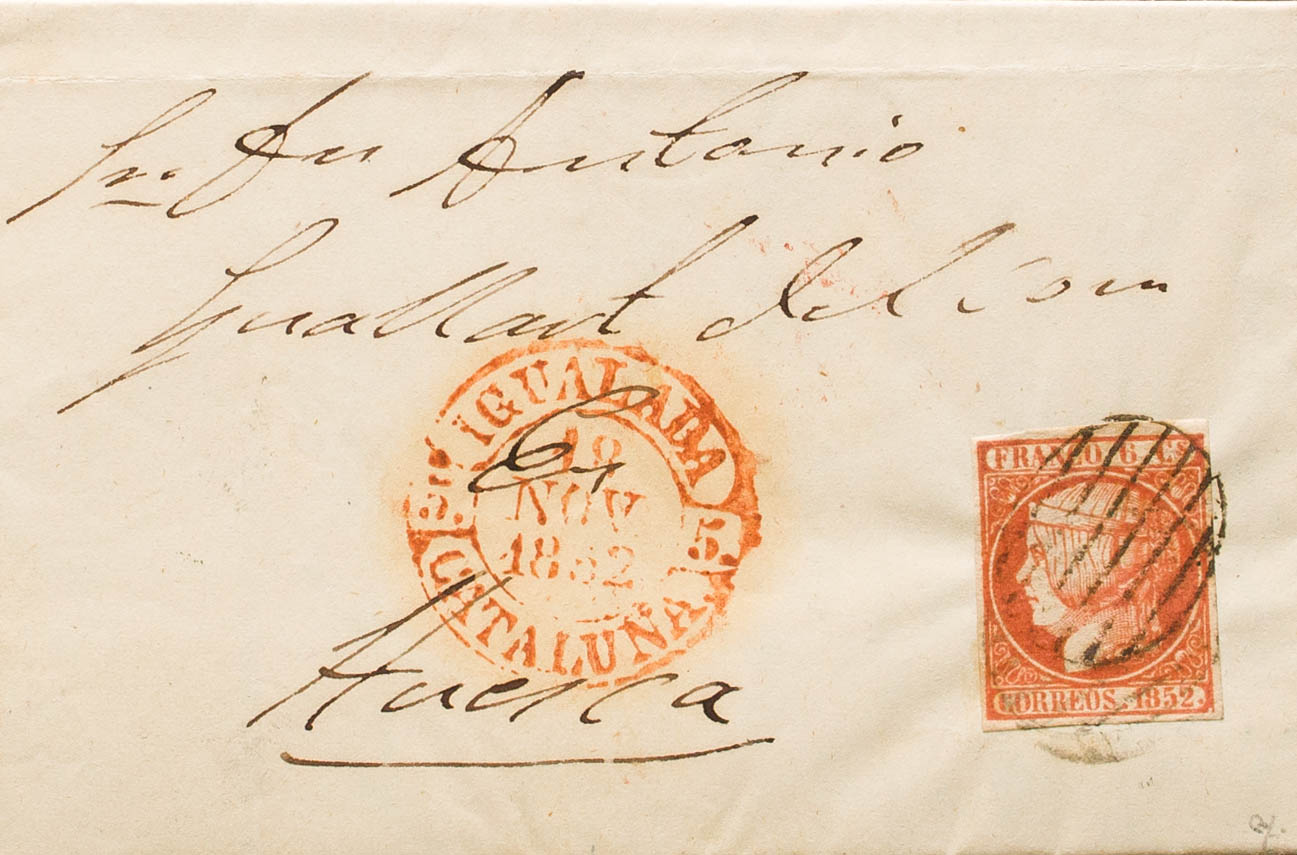 Sr. Dn Antonio
Guallart del Com
En
Huesca
IGUALADA
18
NOV
1852
5.
CATALUÑA.
FRANCO. 6 CS
CORREOS. 1852.